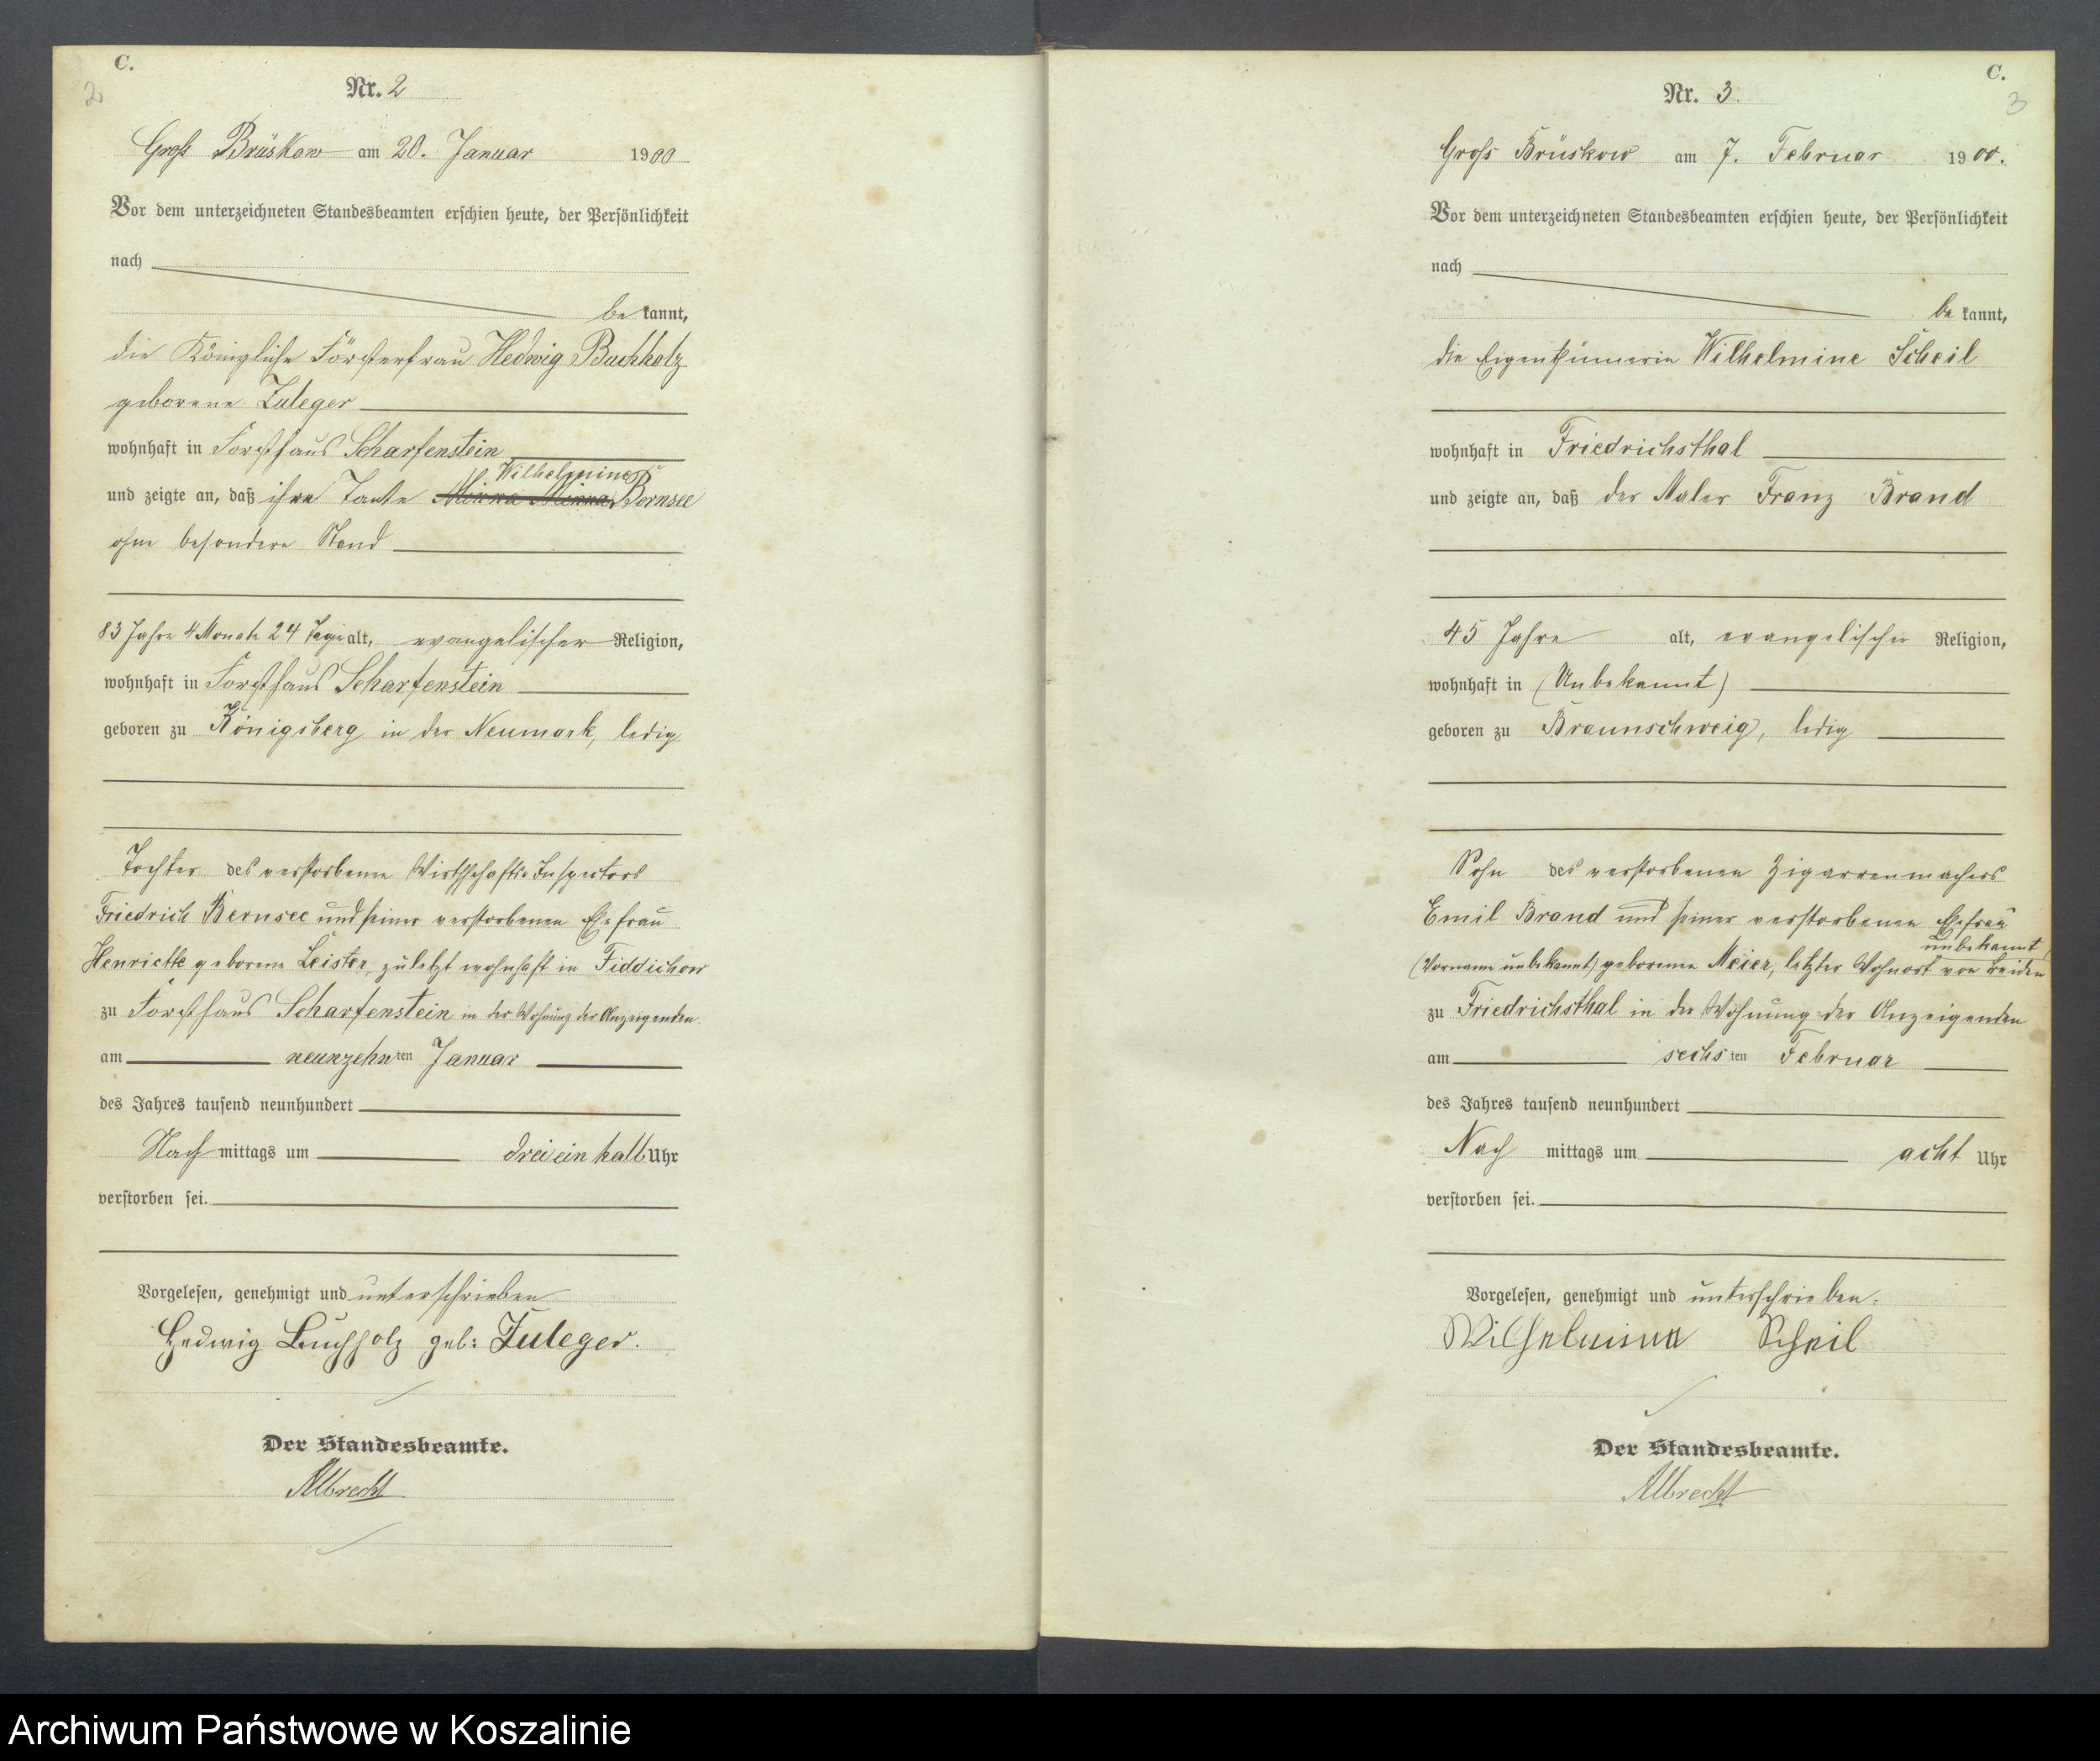 C.
2
Nr. 2
Groß Brüskow am 20. Januar 1900
Vor dem unterzeichneten Standesbeamten erschien heute, der Persönlichkeit
nach
be kannt,
die Königliche Försterfrau Hedwig Buchholz
geborene Zuleger
wohnhaft in Forsthaus Scharfenstein
Wilhelmine
und zeigte an, daß ihre Tante Bernsee
ohne besondere Stand
83 Jahre 4 Monate 24 Tage alt, evangelischer Religion,
wohnhaft in Forsthaus Scharfenstein
geboren zu Königsberg in der Neumark, ledig
Tochter des verstorbenen Wirthschafts-Inspectors
Friedrich Bernsee und seiner verstorbenen Ehefrau
Henriette geborene Leister, zuletzt wohnhaft in Fiddichow
zu Forsthaus Scharfenstein in der Wohnung der Anzeigenden
am neunzehn ten Januar
des Jahres tausend neunhundert
Nach mittags um drei ein halb Uhr
verstorben sei.
Vorgelesen, genehmigt und unterschrieben
Hedwig Buchholz geb: Zuleger.
Der Standesbeamte.
Albrecht
C.
3
Nr. 3.
Groß Brüskow am 7. Februar 1900.
Vor dem unterzeichneten Standesbeamten erschien heute, der Persönlichkeit
nach
be kannt,
die Eigenthümerin Wilhelmine Scheil
wohnhaft in Friedrichsthal
und zeigte an, daß der Maler Franz Brand
45 Jahre alt, evangelischer Religion,
wohnhaft in (Unbekannt)
geboren zu Braunschweig, ledig
Sohn des verstorbenen Zigarrenmachers
Emil Brand und seiner verstorbenen Ehefrau
unbekannt,
(Vorname unbekannt) geborenen Meier, letzter Wohnort von beiden
zu Friedrichsthal in der Wohnung der Anzeigenden
am sechs ten Februar
des Jahres tausend neunhundert
Nach mittags um acht Uhr
verstorben sei.
Vorgelesen, genehmigt und unterschrieben.
Wilhelmine Scheil
Der Standesbeamte.
Albrecht
Archiwum Państwowe w Koszalinie